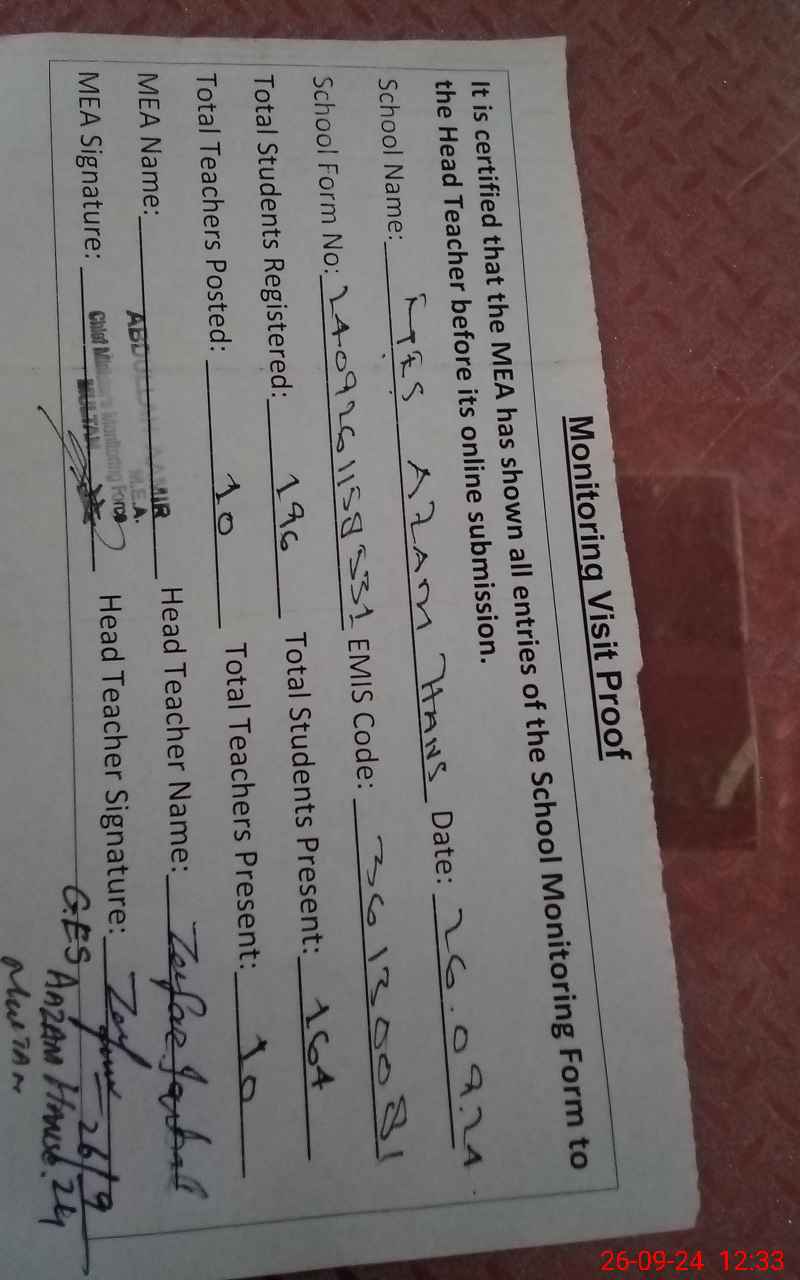 Monitoring Visit Proof
It is certified that the MEA has shown all entries of the School Monitoring Form to
the Head Teacher before its online submission.
School Name: GES AZAM HANS Date: 26.09.24
School Form No: 2409261158531 EMIS Code: 36130081
Total Students Registered: 196 Total Students Present: 164
Total Teachers Posted: 10 Total Teachers Present: 10
MEA Name: ABDULLAH AAMIR Head Teacher Name:
M.E.A.
Chief Minister's Monitoring Force
MULTAN
MEA Signature: Head Teacher Signature: 26/9
G.ES AAZAM 24
MULTAN
26-09-24 12:33